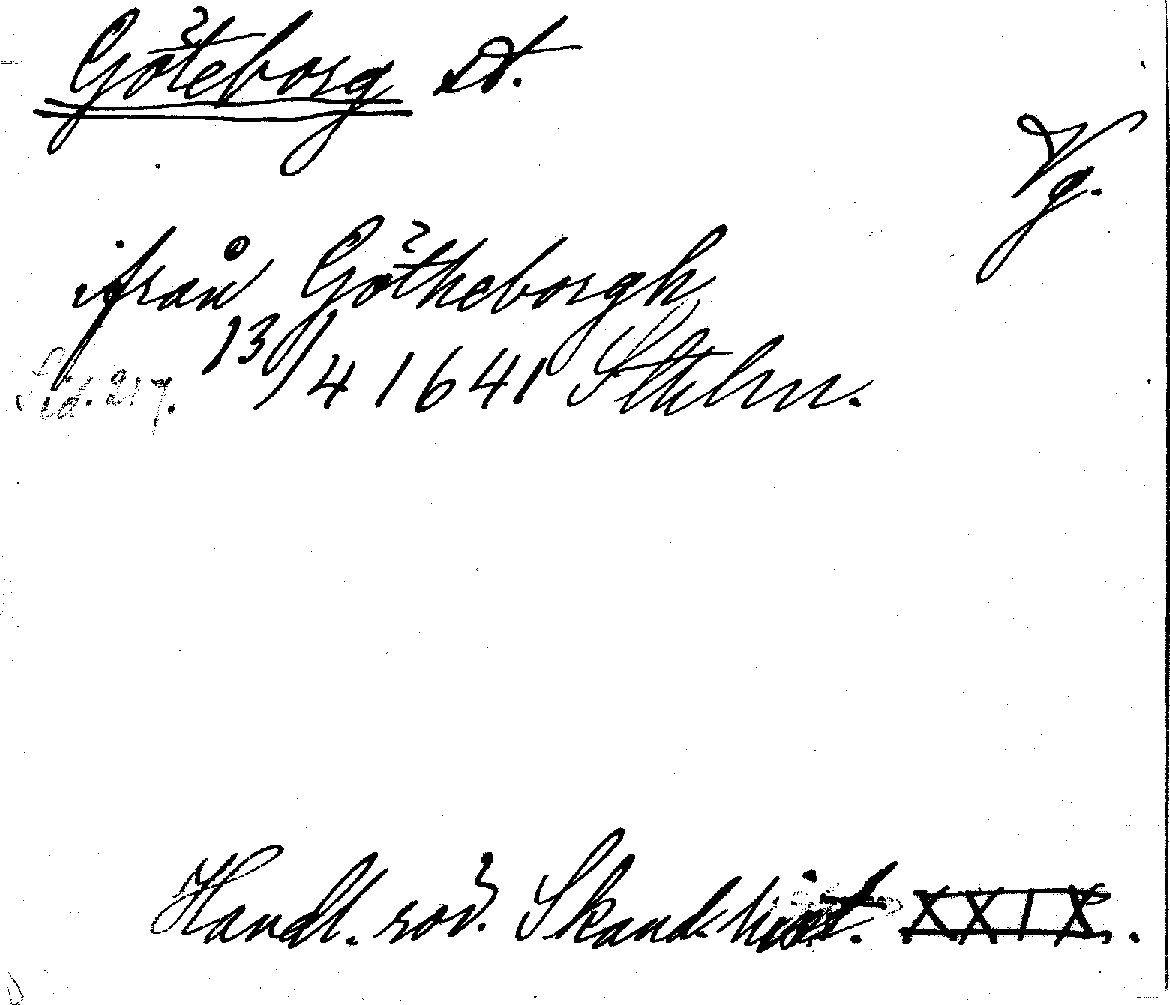 Göteborg st.
Vg.
ifrån Götheborgh
13/4 1641 Sthlm.
Sid. 217.
Handl. rör. Skand. hist. XXIX.